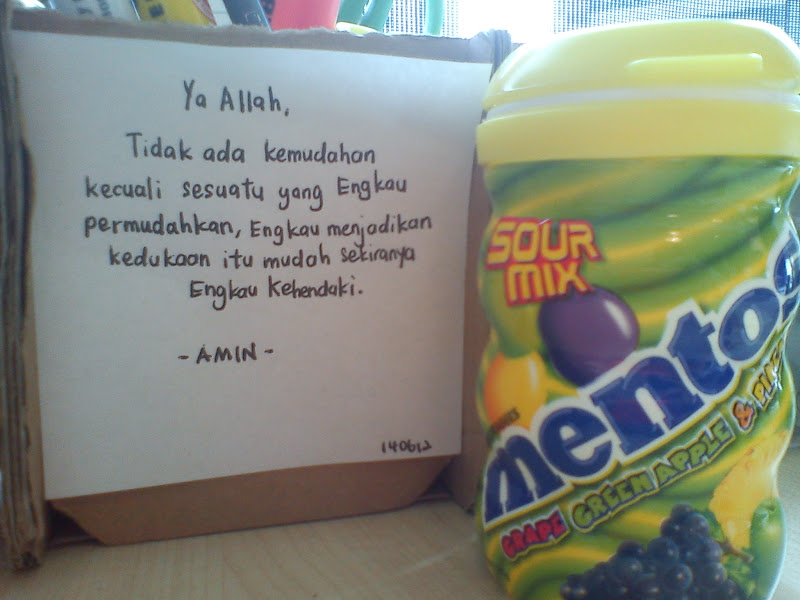 Ya Allah,
Tidak ada kemudahan
kecuali sesuatu yang Engkau
permudahkan, Engkau menjadikan
kedukaan itu mudah sekiranya
Engkau Kehendaki.
- AMIN -
140612
SOUR
MIX
mentos
GRAPE GREEN APPLE &